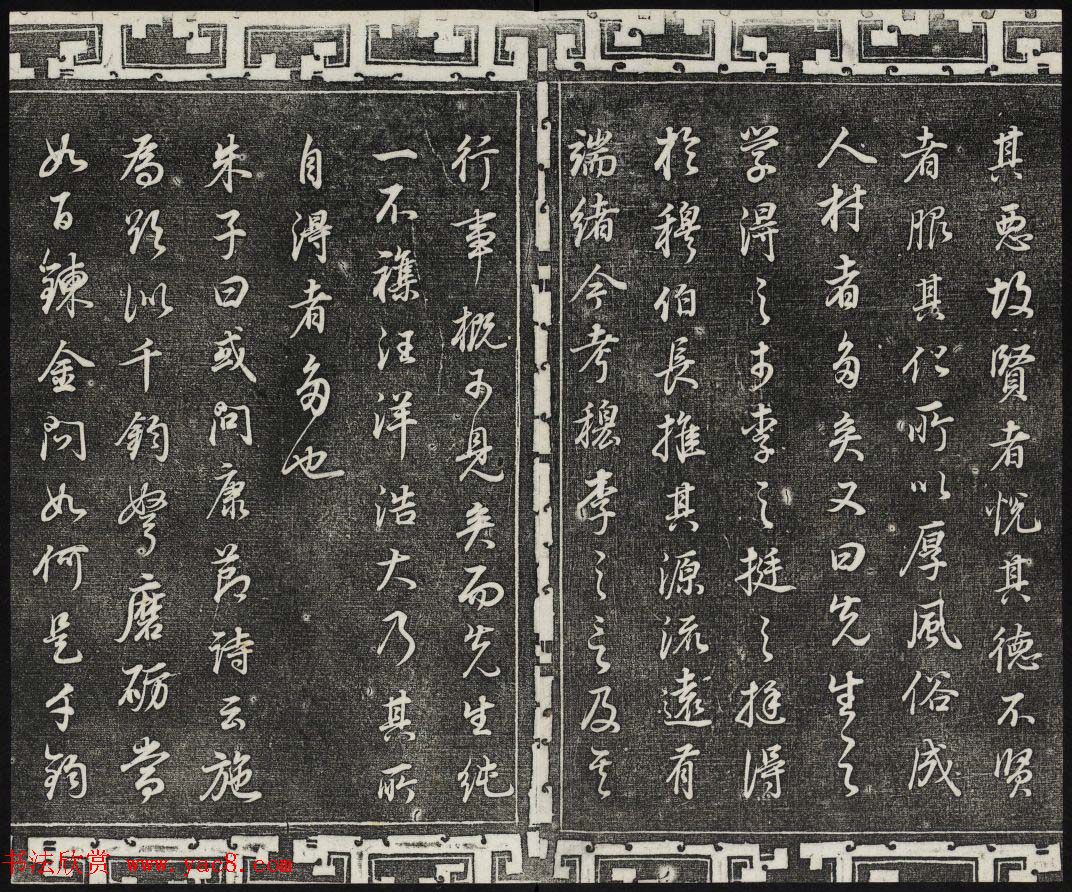 其惡故賢者悅其德不賢
者服其化所以厚風俗成
人材者多矣又曰先生之
学得之於李之挺之挺得
於穆伯長推其源流遠有
端緒今考穆李之言及其
行事概可見矣而先生純
一不襍汪洋浩大乃其所
自得者多也
朱子曰或問康莭詩云施
為欲似千鈞弩磨礪當
如百鍊金問如何是千鈞
书法欣赏 www.yac8.com